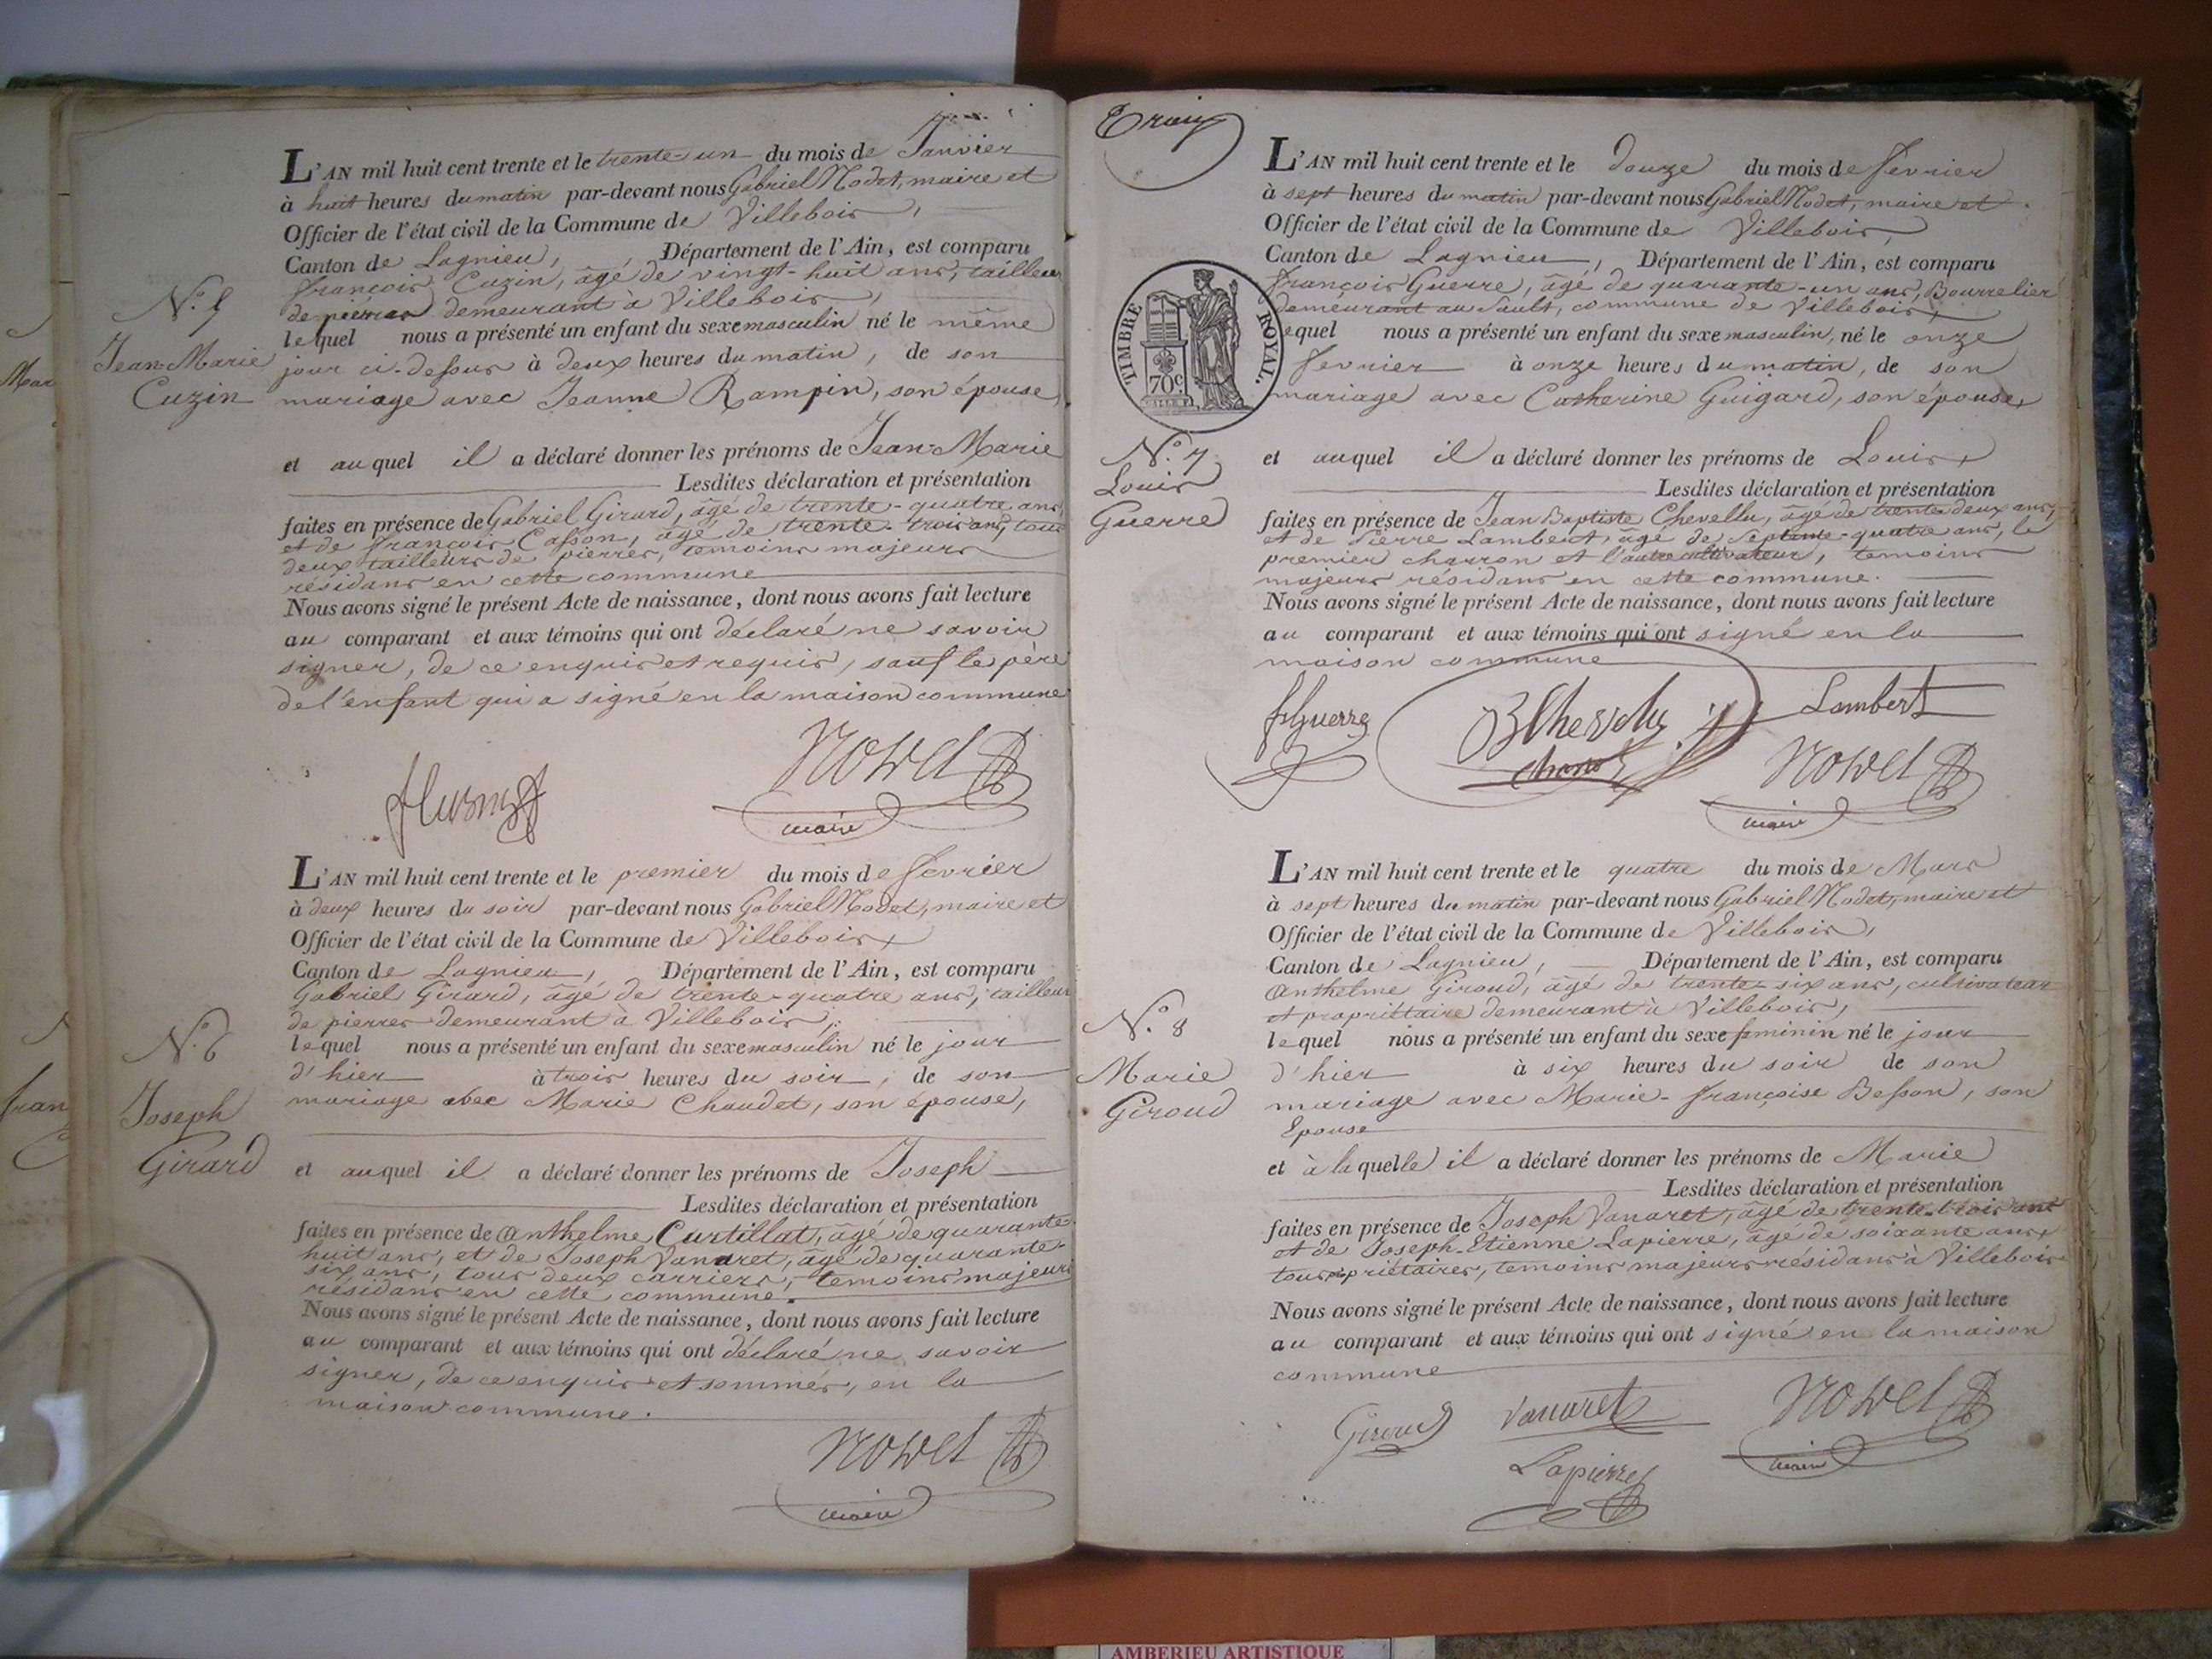 L'AN mil huit cent trente et le trente-un du mois de Janvier
à huit heures du matin par-devant nous Gabriel Nodet, maire et
Officier de l'état civil de la Commune de Villebois,
Canton de Lagnieu, Département de l'Ain, est comparu
françois Cuzin, âgé de vingt-huit ans, tailleur
de pierres demeurant à Villebois,
lequel nous a présenté un enfant du sexe masculin né le même
jour ci-dessus à deux heures du matin, de son
mariage avec Jeanne Rampin, son épouse,
et auquel il a déclaré donner les prénoms de Jean-Marie
Lesdites déclaration et présentation
faites en présence de Gabriel Girard, âgé de trente-quatre ans,
et de françois Casson, âgé de trente-trois ans, tous
deux tailleurs de pierres, temoins majeurs
résidans en cette commune
Nous avons signé le présent Acte de naissance, dont nous avons fait lecture
au comparant et aux témoins qui ont déclaré ne savoir
signer, de ce enquis et requis, sauf le père
de l'enfant qui a signé en la maison commune
N.° 5
Jean-Marie
Cuzin
maire
L'AN mil huit cent trente et le premier du mois de fevrier
à deux heures du soir par-devant nous Gabriel Nodet, maire et
Officier de l'état civil de la Commune de Villebois
Canton de Lagnieu, Département de l'Ain, est comparu
Gabriel Girard, âgé de trente-quatre ans, tailleur
de pierres demeurant à Villebois,
lequel nous a présenté un enfant du sexe masculin né le jour
d'hier à trois heures du soir, de son
mariage avec Marie Chaudet, son épouse,
et auquel il a déclaré donner les prénoms de Joseph
Lesdites déclaration et présentation
faites en présence de Anthelme Curtillat, âgé de quarante
huit ans, et de Joseph Vanaret, âgé de quarante-
six ans, tous deux carriers, temoins majeurs
résidans en cette commune.
Nous avons signé le présent Acte de naissance, dont nous avons fait lecture
au comparant et aux témoins qui ont déclaré ne savoir
signer, de ce enquis et sommés, en la
maison commune.
N.° 6
Joseph
Girard
maire
TIMBRE ROYAL.
70c
L'AN mil huit cent trente et le douze du mois de fevrier
à sept heures du matin par-devant nous Gabriel Nodet, maire et
Officier de l'état civil de la Commune de Villebois,
Canton de Lagnieu, Département de l'Ain, est comparu
françois Guerre, âgé de quarante-un ans, Bourrelier
demeurant au Sault, commune de Villebois,
lequel nous a présenté un enfant du sexe masculin, né le onze
fevrier à onze heures du matin, de son
mariage avec Catherine Guigard, son épouse,
et auquel il a déclaré donner les prénoms de Louis
Lesdites déclaration et présentation
faites en présence de Jean Baptiste Chevellu, âgé de trente deux ans,
et de Pierre Lambert, âgé de septante-quatre ans, le
premier charron et l'autre cultivateur, temoins
majeurs résidans en cette commune.
Nous avons signé le présent Acte de naissance, dont nous avons fait lecture
au comparant et aux témoins qui ont signé en la
maison commune
N.° 7
Louis
Guerre
fGuerre
Lambert
maire
L'AN mil huit cent trente et le quatre du mois de Mars
à sept heures du matin par-devant nous Gabriel Nodet, maire et
Officier de l'état civil de la Commune de Villebois,
Canton de Lagnieu, Département de l'Ain, est comparu
Anthelme Giroud, âgé de trente-six ans, cultivateur
et propriétaire demeurant à Villebois,
lequel nous a présenté un enfant du sexe feminin né le jour
d'hier à six heures du soir de son
mariage avec Marie-françoise Besson, son
Epouse
et à laquelle il a déclaré donner les prénoms de Marie
Lesdites déclaration et présentation
faites en présence de Joseph Vanaret, âgé de trente-trois ans
et de Joseph-Etienne Lapierre, âgé de soixante ans,
tous propriétaires, temoins majeurs résidans à Villebois
Nous avons signé le présent Acte de naissance, dont nous avons fait lecture
au comparant et aux témoins qui ont signé en la maison
commune
N.° 8
Marie
Giroud
Giroud
Vanaret
Lapierre
maire
AMBERIEU ARTISTIQUE